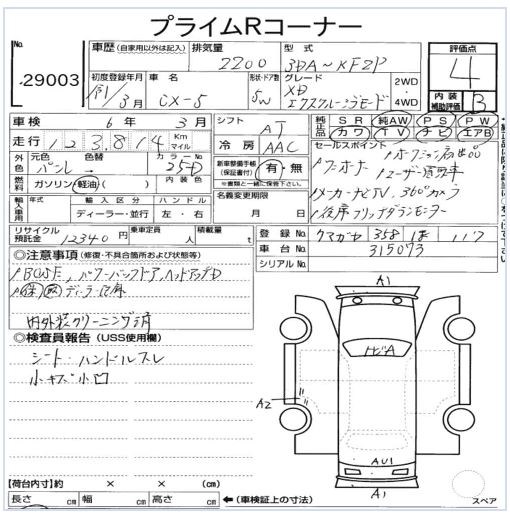 プライムRコーナー
No. 29003
車歴 (自家用以外は記入) 排気量 型式 評価点
2200 3DA~KF2P 4
初度登録年月 車名 形状・ドア数 グレード 2WD
R1年3月 CX-5 5W XD エクスクルーシブモード 4WD
内装補助評価 B
車検 6年 3月 シフト AT 純正品 SR 純AW PS PW
走行 123,814 Km マイル 冷房 AAC カワ TV ナビ エアB
外色 元色 パール 色替 カラーNo. 25D 新車整備手帳(保証書付) 有・無 ※書類と一緒に保管下さい。 セールスポイント
燃料 ガソリン・軽油・( ) 内装色
ワンオーナー ユーザー買取車
輸入車用 年式 輸入区分 ハンドル 名義変更期限
メーカーナビTV、360°カメラ
ディーラー・並行 左・右 月 日
後席フリップダウンモニター
リサイクル預託金 12340円 乗車定員 人 積載量 t 登録No. クマガヤ 358 ほ 117
車台No. 315073
シリアルNo.
◎注意事項 (修復・不具合箇所および状態等)
BOSE、パワーバックドア、ヘッドアップD
保 取 ディーラー記録
内外装クリーニング済
◎検査員報告 (USS使用欄)
シート ハンドルスレ
小キズ 小凹
A1
トビA
A2
AU1
A1
スペア
【荷台内寸】約 × × (cm)
長さ cm 幅 cm 高さ cm ←(車検証上の寸法)